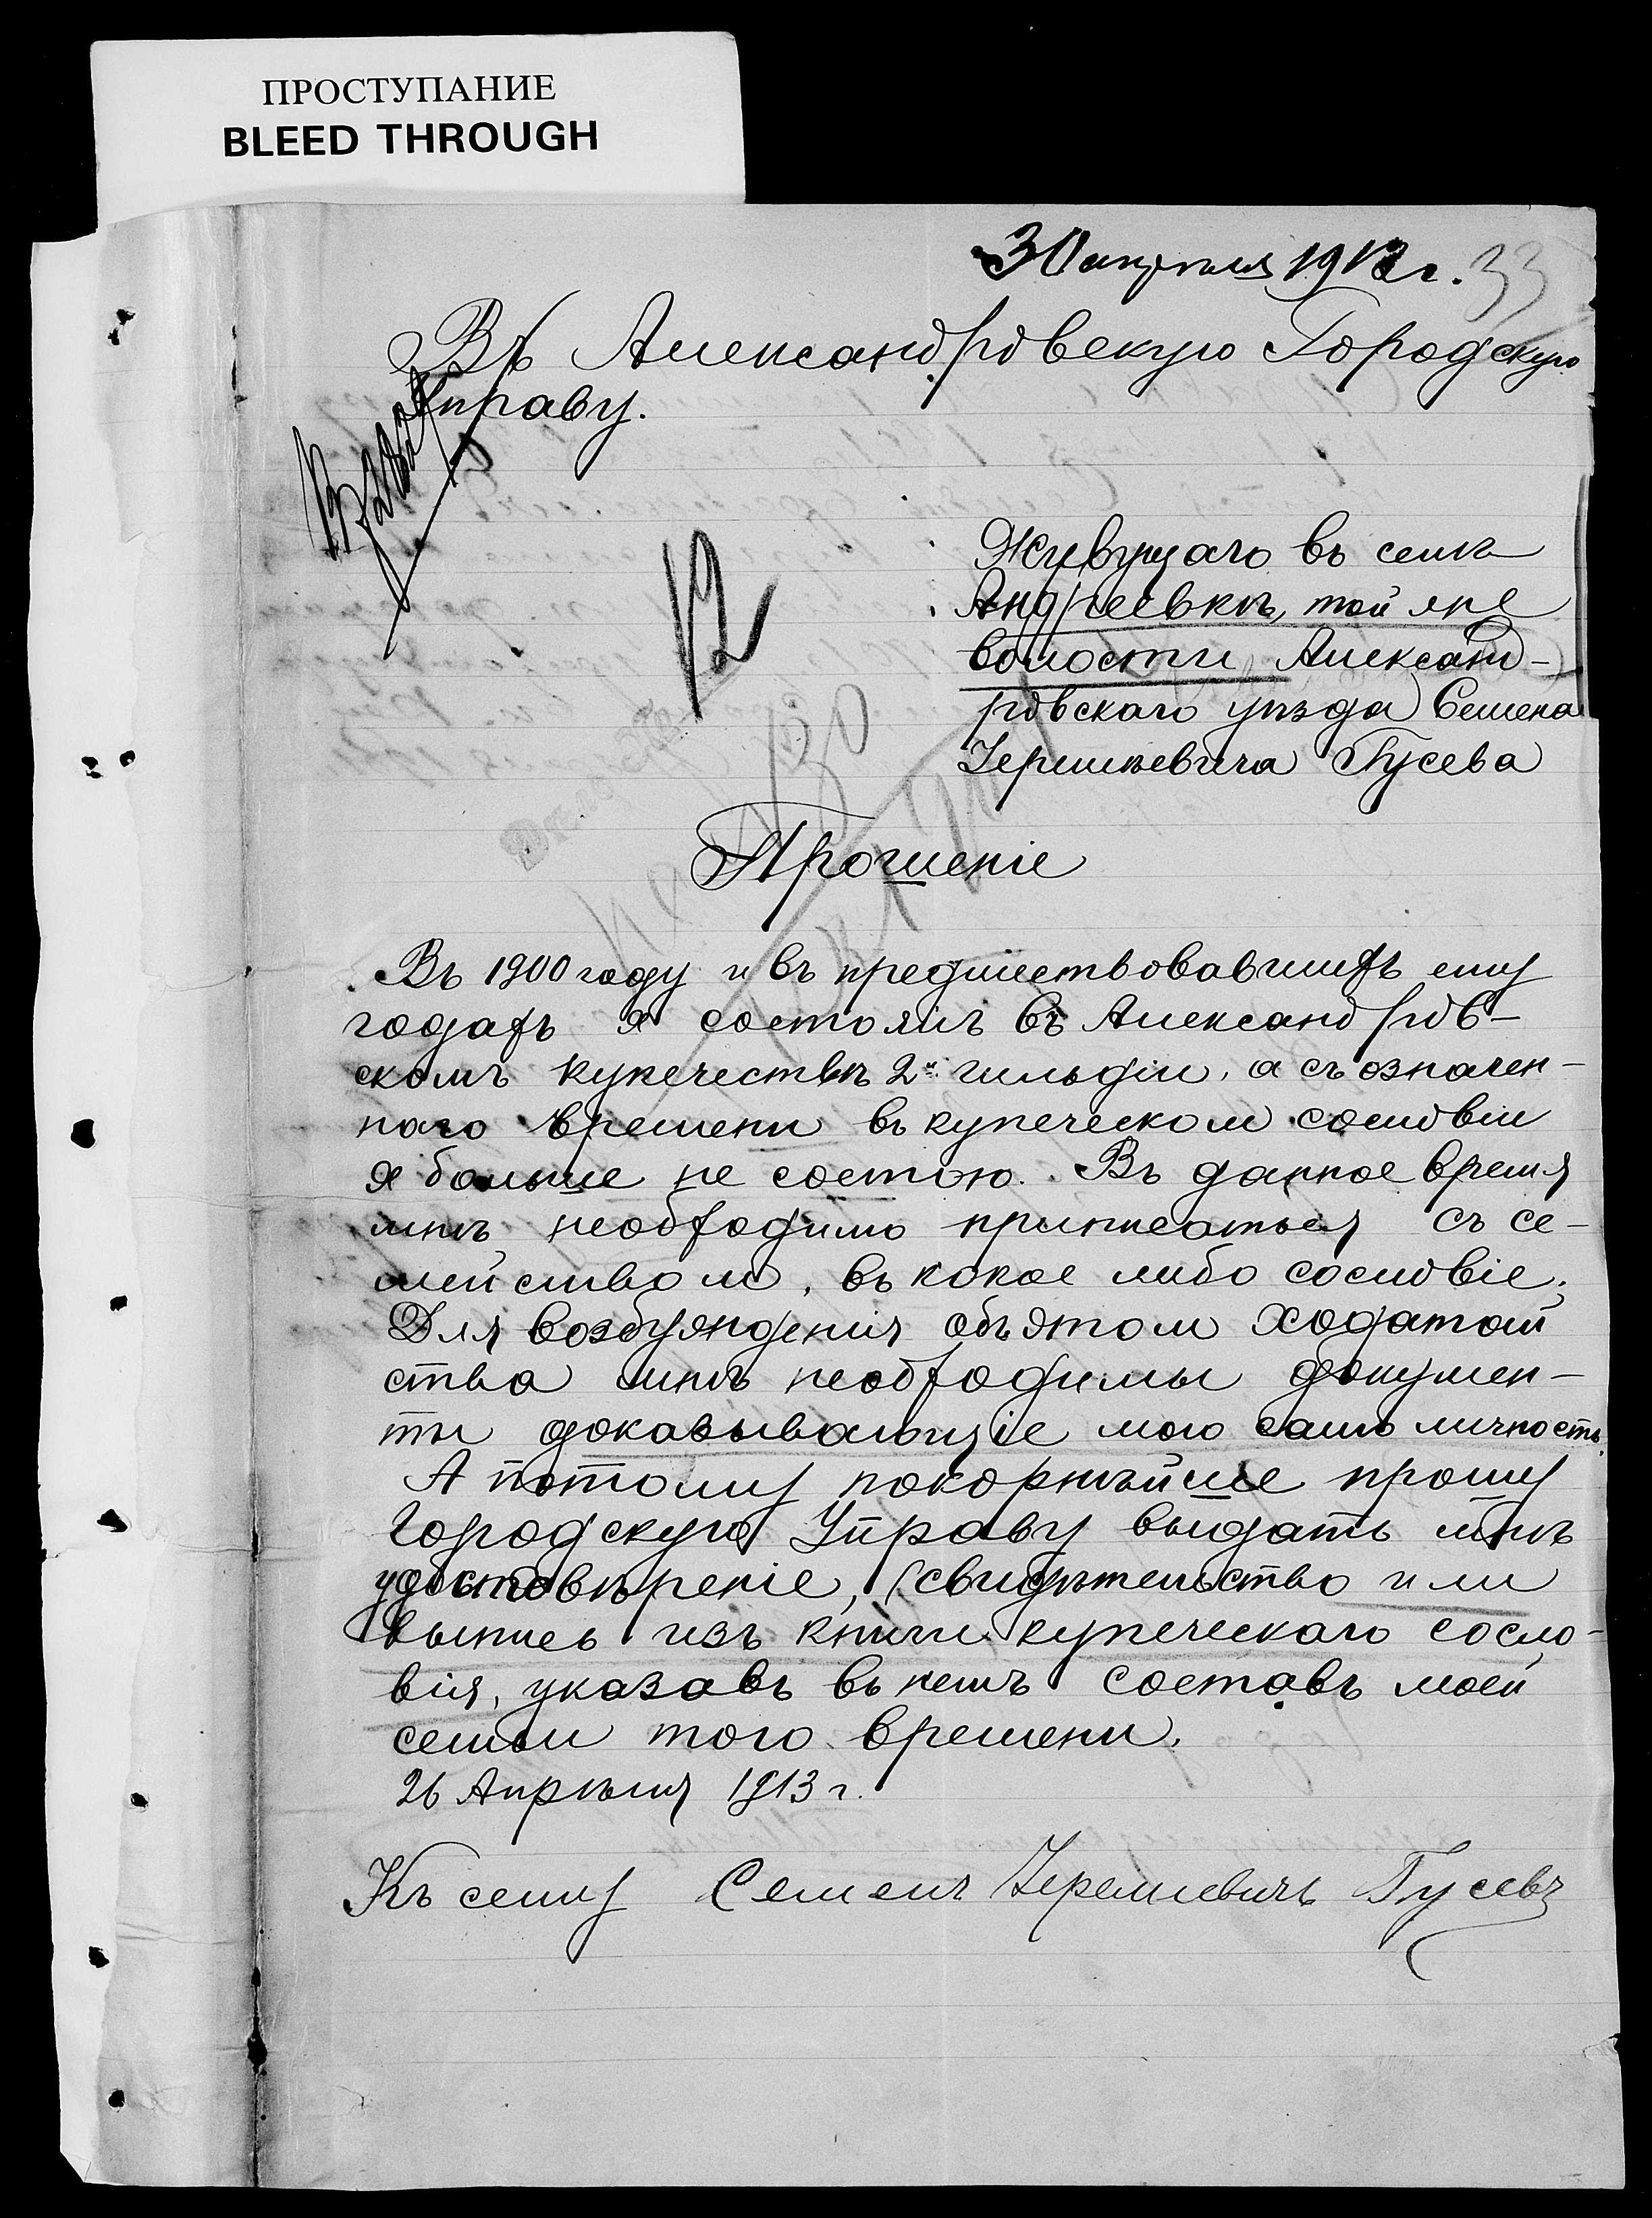 ПРОСТУПАНИЕ
BLEED THROUGH
30 апреля 1913 г. 33
Въ Александровскую Городскую
Управу.
12
Живущаго въ селѣ
Андреевкѣ, той же
волости Александ-
ровскаго уѣзда Семена
Іеремѣевича Гусева
Прошеніе
Въ 1900 году и въ предшествовавшихъ ему
годахъ я состоялъ въ Александров-
скомъ купечествѣ 2й гильдіи, а съ означен-
наго времени въ купеческом сословіи
я больше не состою. Въ данное время
мнѣ необходимо приписаться съ се-
мейством, въ какое либо сословіе.
Для возбужденія объ этом ходатай
ства мнѣ необходимы докумен-
ты доказывающіе мою само личность.
А потому покорнѣйше прошу
Городскую Управу выдать мнѣ
удостовѣреніе, свидѣтельство или
выпись изъ книги купеческаго сосло-
вія, указавъ въ немъ составъ моей
семьи того времени.
26 Апрѣля 1913 г.
Къ сему Семенъ Іеремиевичъ Гусевъ